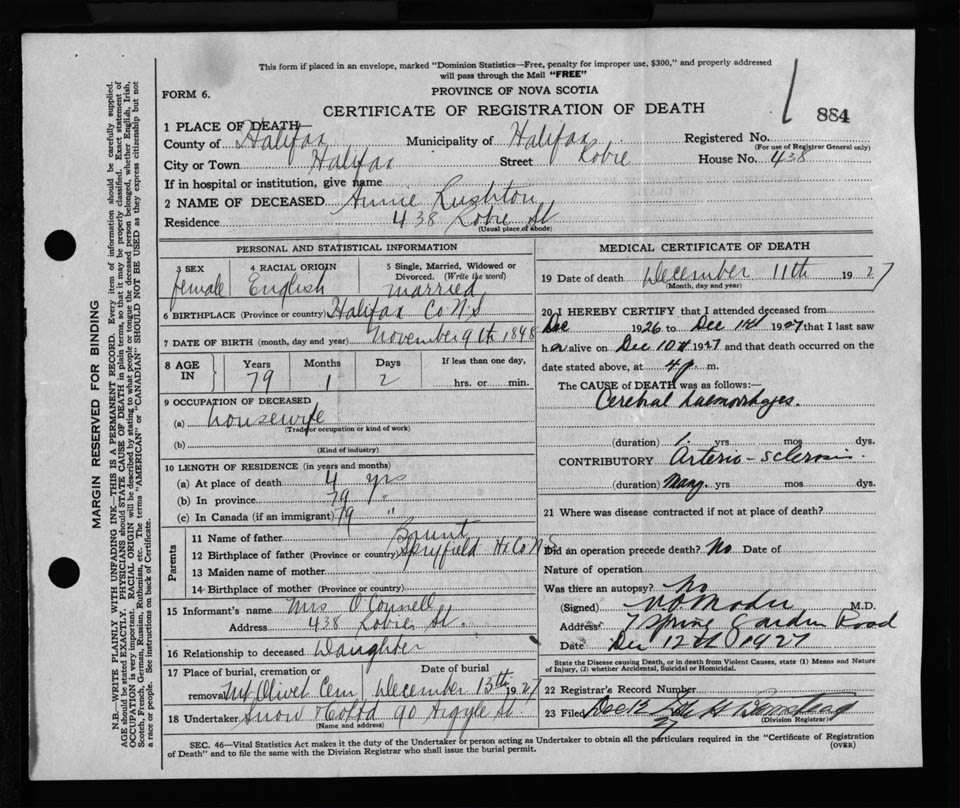 This form if placed in an envelope, marked "Dominion Statistics—Free, penalty for improper use, $300," and properly addressed
will pass through the Mail "FREE"
FORM 6.
PROVINCE OF NOVA SCOTIA
CERTIFICATE OF REGISTRATION OF DEATH
884
1 PLACE OF DEATH—
County of Halifax Municipality of Halifax Registered No.
(For use of Registrar General only)
City or Town Halifax Street Robie House No. 438
If in hospital or institution, give name
2 NAME OF DECEASED Annie Rushton
Residence 438 Robie St
(Usual place of abode)
PERSONAL AND STATISTICAL INFORMATION
3 SEX female
4 RACIAL ORIGIN English
5 Single, Married, Widowed or Divorced. (Write the word) married
6 BIRTHPLACE (Province or country) Halifax Co N.S
7 DATE OF BIRTH (month, day and year) November 9th 1848
8 AGE IN Years 79 Months 1 Days 2 If less than one day, hrs. or min.
9 OCCUPATION OF DECEASED
(a) housewife
(Trade or occupation or kind of work)
(b)
(Kind of industry)
10 LENGTH OF RESIDENCE (in years and months)
(a) At place of death 4 yrs
(b) In province 79 "
(c) In Canada (if an immigrant) 79 "
Parents
11 Name of father Brunt
12 Birthplace of father (Province or country) Spryfield Hx Co N S
13 Maiden name of mother
14 Birthplace of mother (Province or country)
15 Informant's name Mrs O'Connell
Address 438 Robie St.
16 Relationship to deceased Daughter
17 Place of burial, cremation or removal Mt Olivet Cem Date of burial December 13th 1927
18 Undertaker Snow & Co Ltd 90 Argyle St.
(Name and address)
MEDICAL CERTIFICATE OF DEATH
19 Date of death December 11th 1927
(Month, day and year)
20 I HEREBY CERTIFY that I attended deceased from
Dec 1926 to Dec 1927 that I last saw
h alive on Dec 10th 1927 and that death occurred on the
date stated above, at 4 p. m.
The CAUSE of DEATH was as follows:—
Cerebral haemorrhages.
(duration) 1. yrs mos dys.
CONTRIBUTORY Arterio-sclerosis.
(duration) Many. yrs. mos. dys.
21 Where was disease contracted if not at place of death?
Did an operation precede death? No Date of
Nature of operation
Was there an autopsy? No
(Signed) M.D.
Address 7 Spring Garden Road
Date Dec 12th 1927
State the Disease causing Death, or in death from Violent Causes, state (1) Means and Nature
of Injury, (2) whether Accidental, Suicidal or Homicidal.
22 Registrar's Record Number
23 Filed Dec 13 27
(Division Registrar)
SEC. 46—Vital Statistics Act makes it the duty of the Undertaker or person acting as Undertaker to obtain all the particulars required in the "Certificate of Registration
of Death" and to file the same with the Division Registrar who shall issue the burial permit.
(OVER)
MARGIN RESERVED FOR BINDING
N.B.—WRITE PLAINLY WITH UNFADING INK—THIS IS A PERMANENT RECORD. Every item of information should be carefully supplied.
AGE should be stated EXACTLY. PHYSICIANS should STATE CAUSE OF DEATH in plain terms, so that it may be properly classified. Exact statement of
OCCUPATION is very important. RACIAL ORIGIN will be described by stating to what people or tongue the deceased person belonged, whether English, Irish,
Scotch, French, German, Russian, Ruthenian, etc. The terms "AMERICAN" or "CANADIAN" SHOULD NOT BE USED as they express citizenship but not
a race or people. See instructions on back of Certificate.